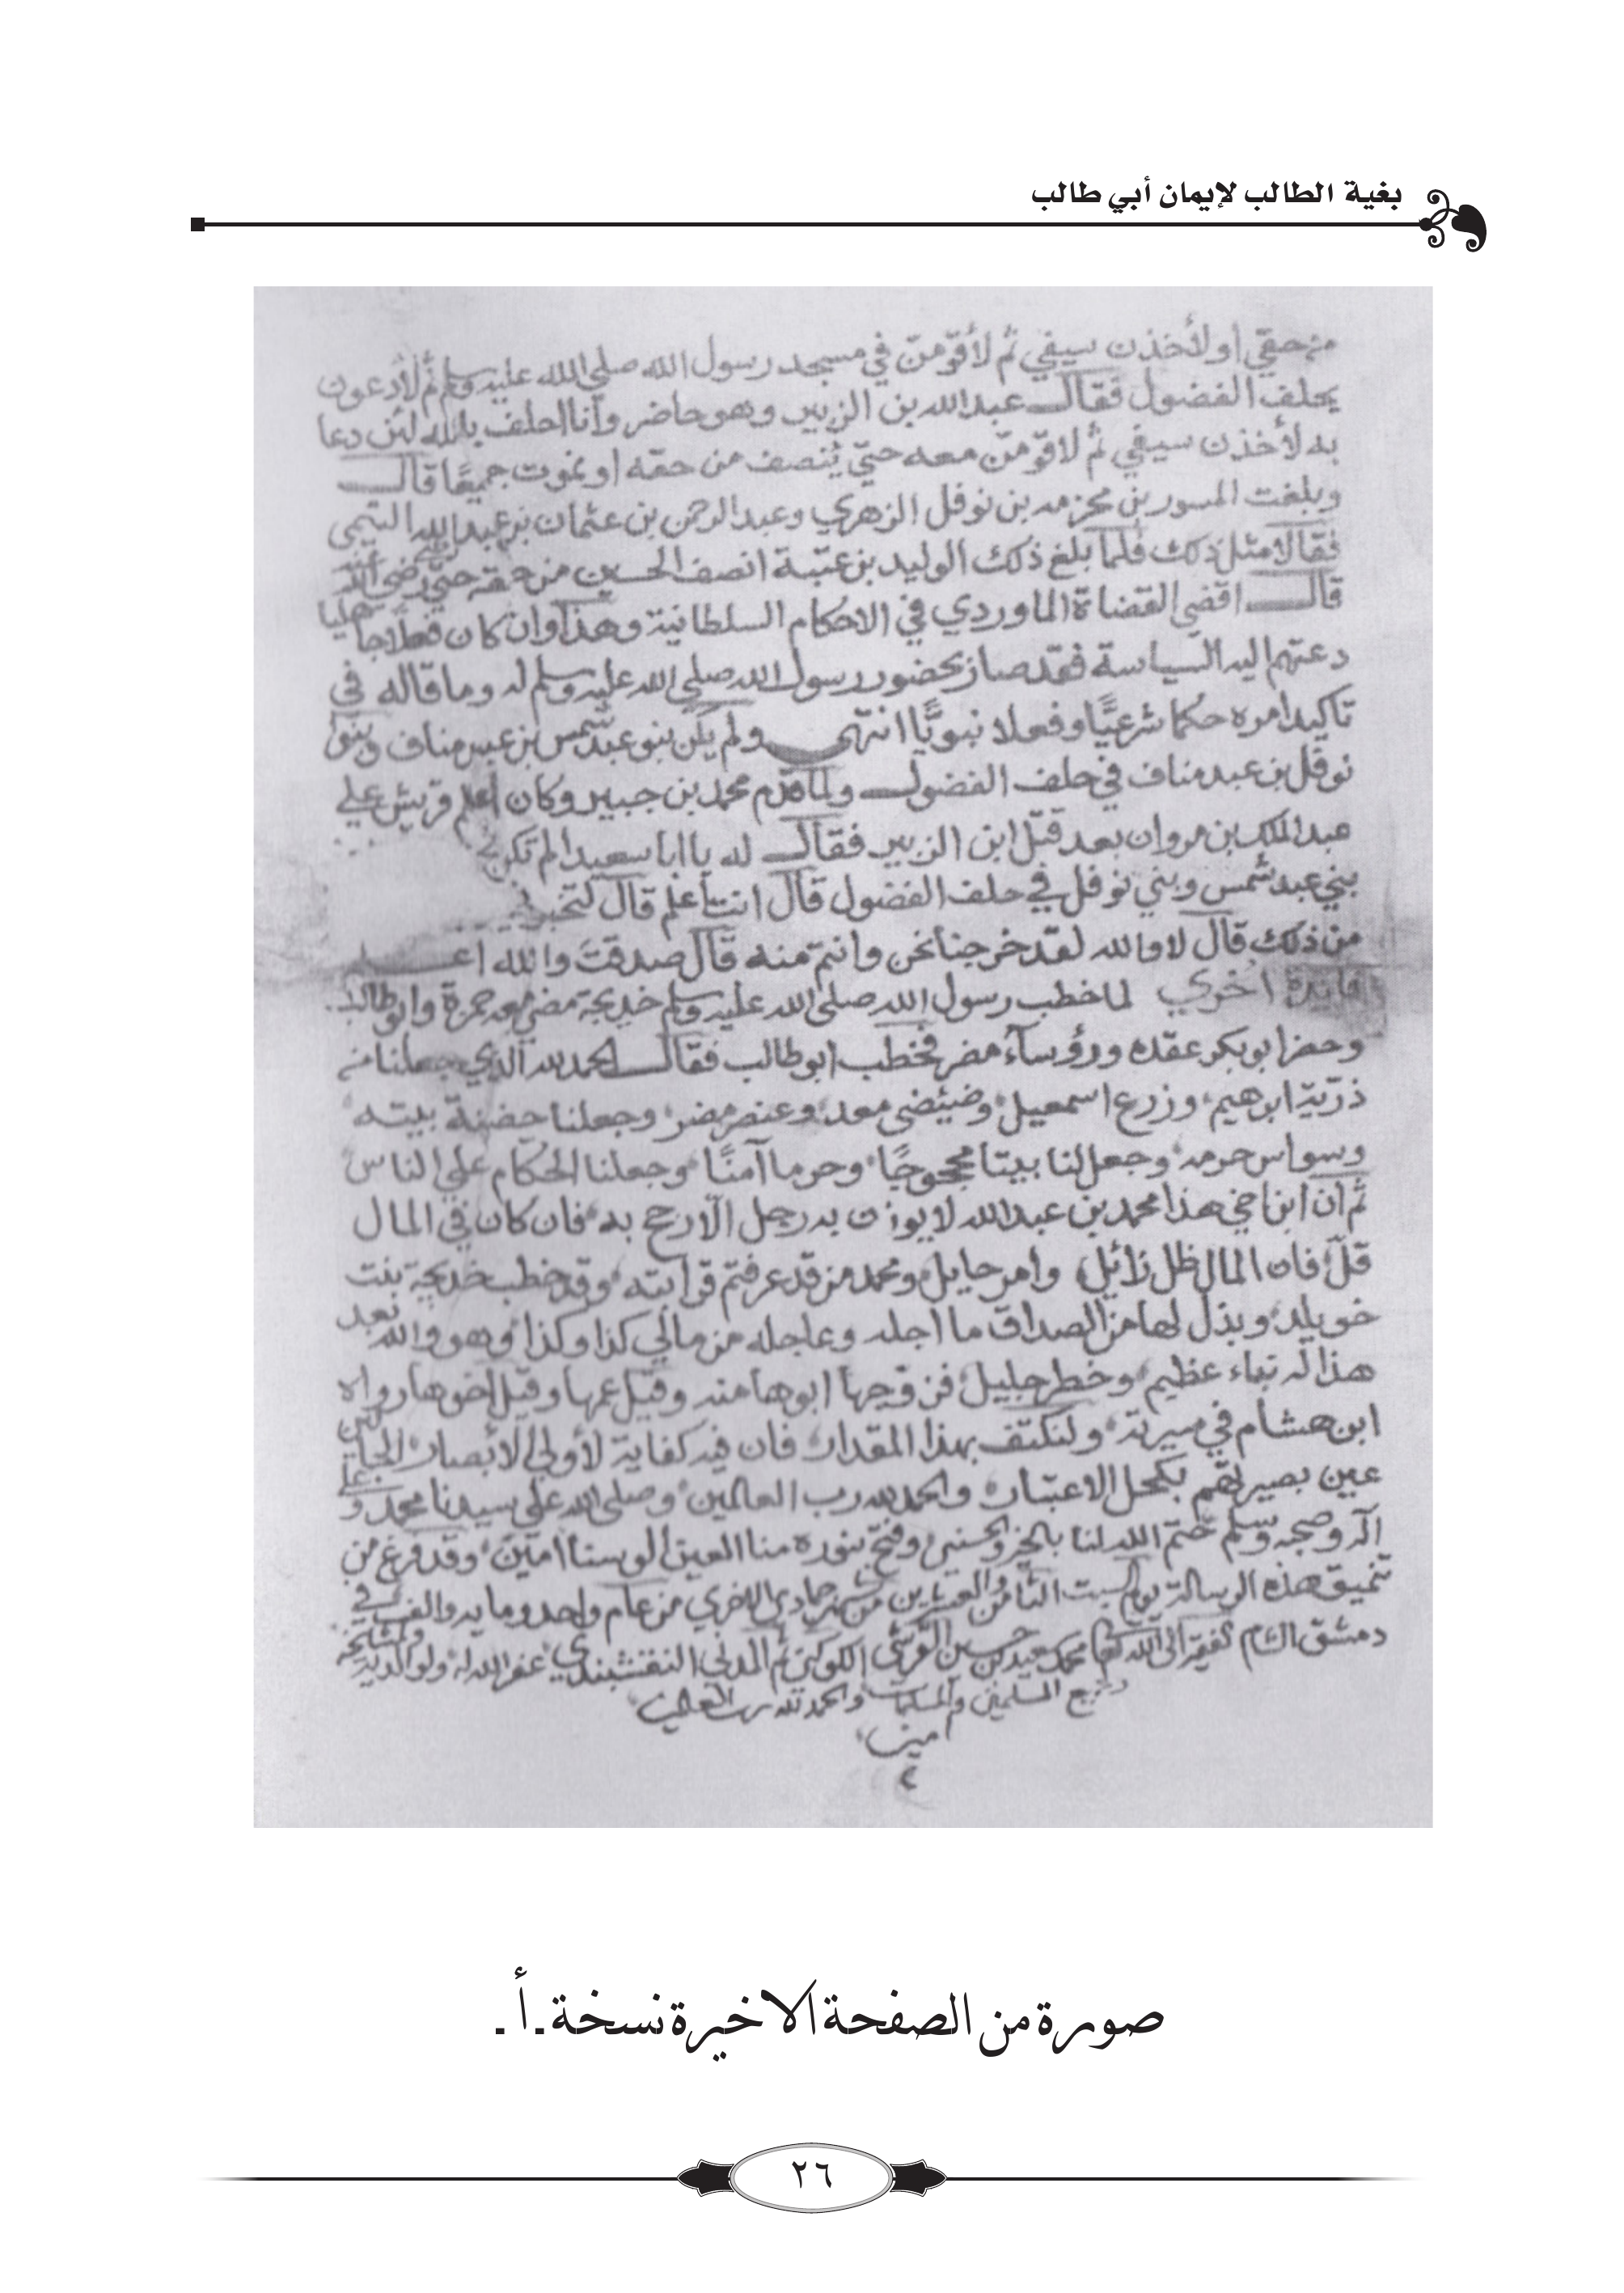 بغية الطالب لإيمان أبي طالب
من حقي أو لأخذن سيفي ثم لأقومن في مسجد رسول الله صلى الله عليه وسلم ثم لأدعون
بحلف الفضول فقال عبد الله بن الزبير وهو حاضر وأنا احلف بالله لئن دعا
به لأخذن سيفي ثم لاقومن معه حتى يُنصف من حقه او نموت جميعًا قال
وبلغت المسور بن مخرمه بن نوفل الزهري وعبد الرحمن بن عثمان بن عبد الله التيمي
فقالا مثل ذلك فلما بلغ ذلك الوليد بن عتبة انصف الحسين من حقه حتى رضي
قال اقضى القضاة الماوردي في الاحكام السلطانية وهذا وان كان فعلا جاهليا
دعتهم اليه السياسة فقد صار بحضور رسول الله صلى الله عليه وسلم له وما قاله في
تاكيد امره حكما شرعيًا وفعلا نبويًّا انتهى ولم يكن بنو عبد شمس بن عبد مناف وبنو
نوفل بن عبد مناف في حلف الفضول ولما قدم محمد بن جبير وكان أعلم قريش على
عبد الملك بن مروان بعد قتل ابن الزبير فقال له يا ابا سعيد الم تكن
بني عبد شمس وبني نوفل في حلف الفضول قال انت أعلم قال لتخبرني
من ذلك قال لا والله لقد خرجنا نحن وانتم منه قال صدقت والله اعلم
فائدة أخرى لما خطب رسول الله صلى الله عليه وسلم خديجة مضى معه حمزة وابو طالب
وحضر ابو بكر عقده ورؤساء مضر فخطب ابو طالب فقال الحمد لله الذي جعلنا من
ذرّية ابرهيم وزرع اسمعيل وضئضى معد وعنصر مضر وجعلنا حضنة بيته
وسواس حرمه وجعل لنا بيتا محجوجًا وحرما آمنًا وجعلنا الحكام على الناس
ثم ان ابن اخي هذا محمد بن عبد الله لا يوزن به رجل الا رجح به فان كان في المال
قلّ فان المال ظل زائل وامر حايل ومحمد من قد عرفتم قرابته وقد خطب خديجة بنت
خويلد وبذل لها من الصداق ما اجله وعاجله من مالي كذا وكذا وهو والله بعد
هذا له نباء عظيم وخطر جليل فزوجها ابوها منه وقيل عمها وقيل اخوها رواه
ابن هشام في سيرته ولنكتف بهذا المقدار فان فيه كفاية لأولي الأبصار
عين بصيرتهم بكحل الاعتبار والحمد لله رب العالمين وصلى الله على سيدنا محمد وعلى
آله وصحبه وسلم ختم الله لنا بالخير والحسنى وفتح بنوره منا العين الوسنا امين وقد فرغ من
تنميق هذه الرسالة يوم السبت الثامن والعشرين من شهر جمادى الاخرى من عام واحد ومايه والف في
دمشق الشام الفقير الى الله محمد بن حسين القرشي ثم المدني النقشبندي غفر الله له ولوالديه ولمشايخه
وجميع المسلمين والمسلمات والحمد لله رب العالمين
امين
صورة من الصفحة الاخيرة نسخة ـ أ ـ
٢٦